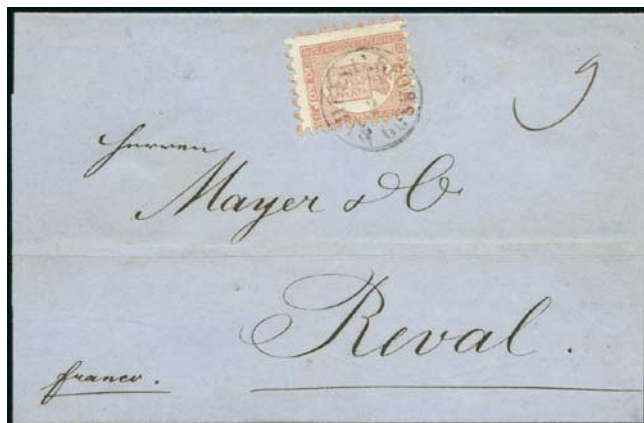 Herren
Mayer & Co
Reval.
franco.